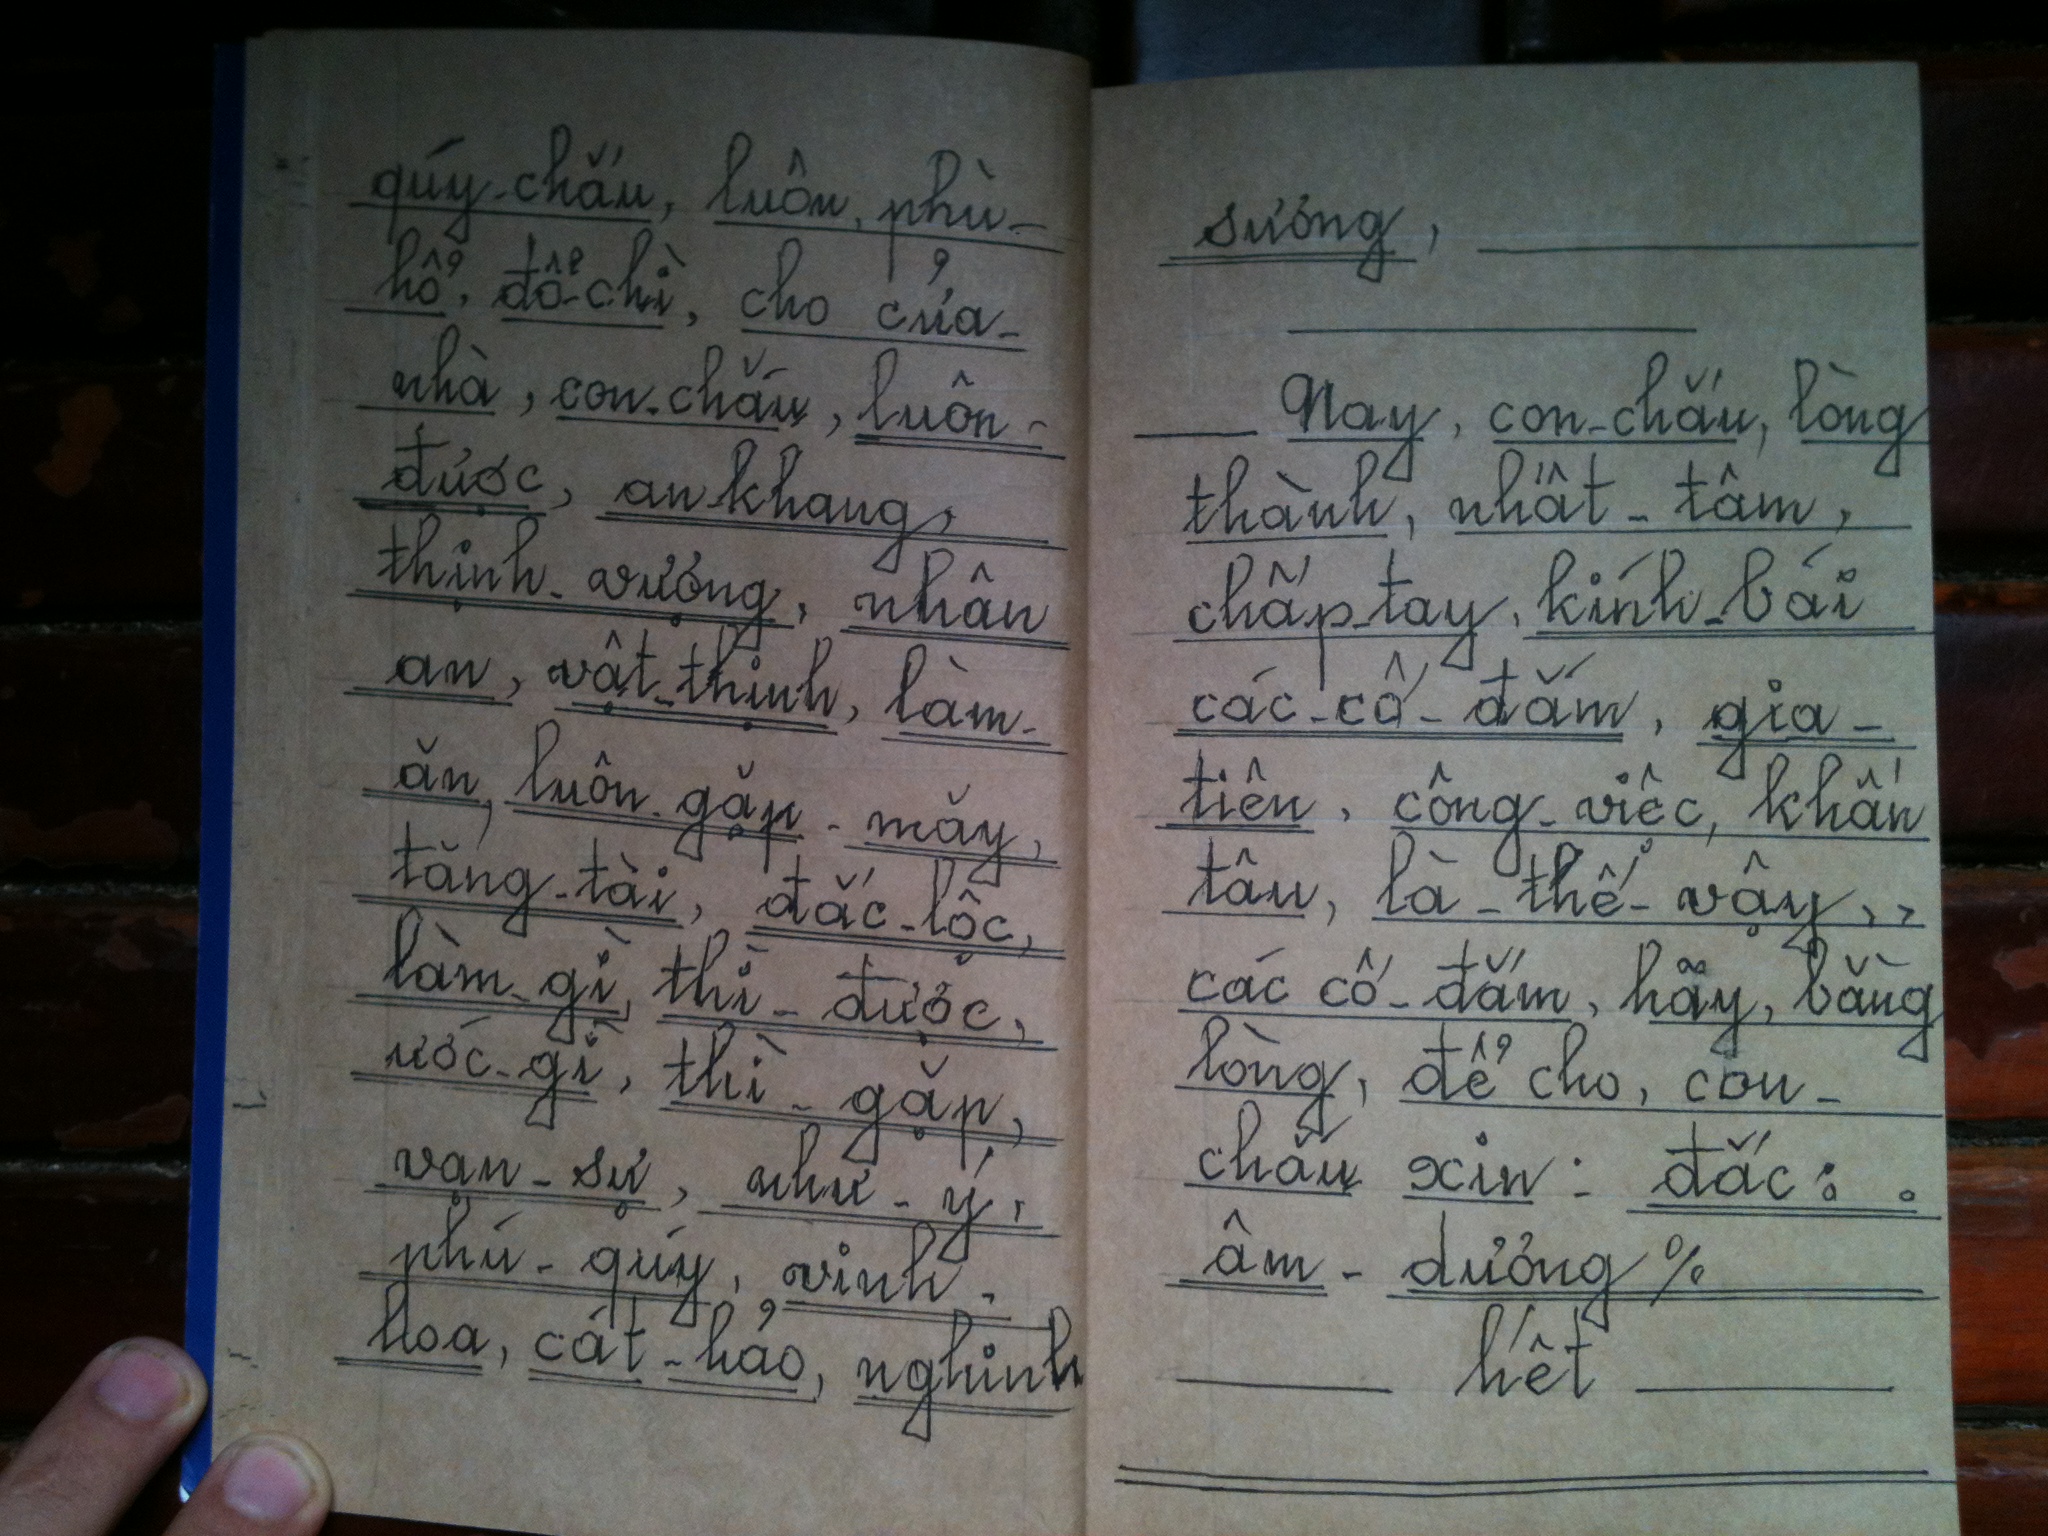 qúy-chắu, luôn, phù-
hổ, đổ-chì, cho của-
nhà, con-chắu, luôn-
được, an khang,
thịnh-vượng, nhân
an, vật-thịnh, làm-
ăn, luôn-gặp-mắy,
tăng-tài, đắc-lộc,
làm-gì, thì-được,
ước-gì, thì-gặp,
vạn-sự, như-ý,
phú-qúy, vinh-
hoa, cát-hảo, nghinh
sương,
Nay, con-chắu, lòng
thành, nhất-tâm,
chắp-tay, kính-bái
các-cố-đắm, gia-
tiên, công-việc, khấn
tâu, là-thế-vậy,,
các cố-đắm, hãy, bằng
lòng, để cho, con-
chắu xin: đắc:
âm-dương %
hết